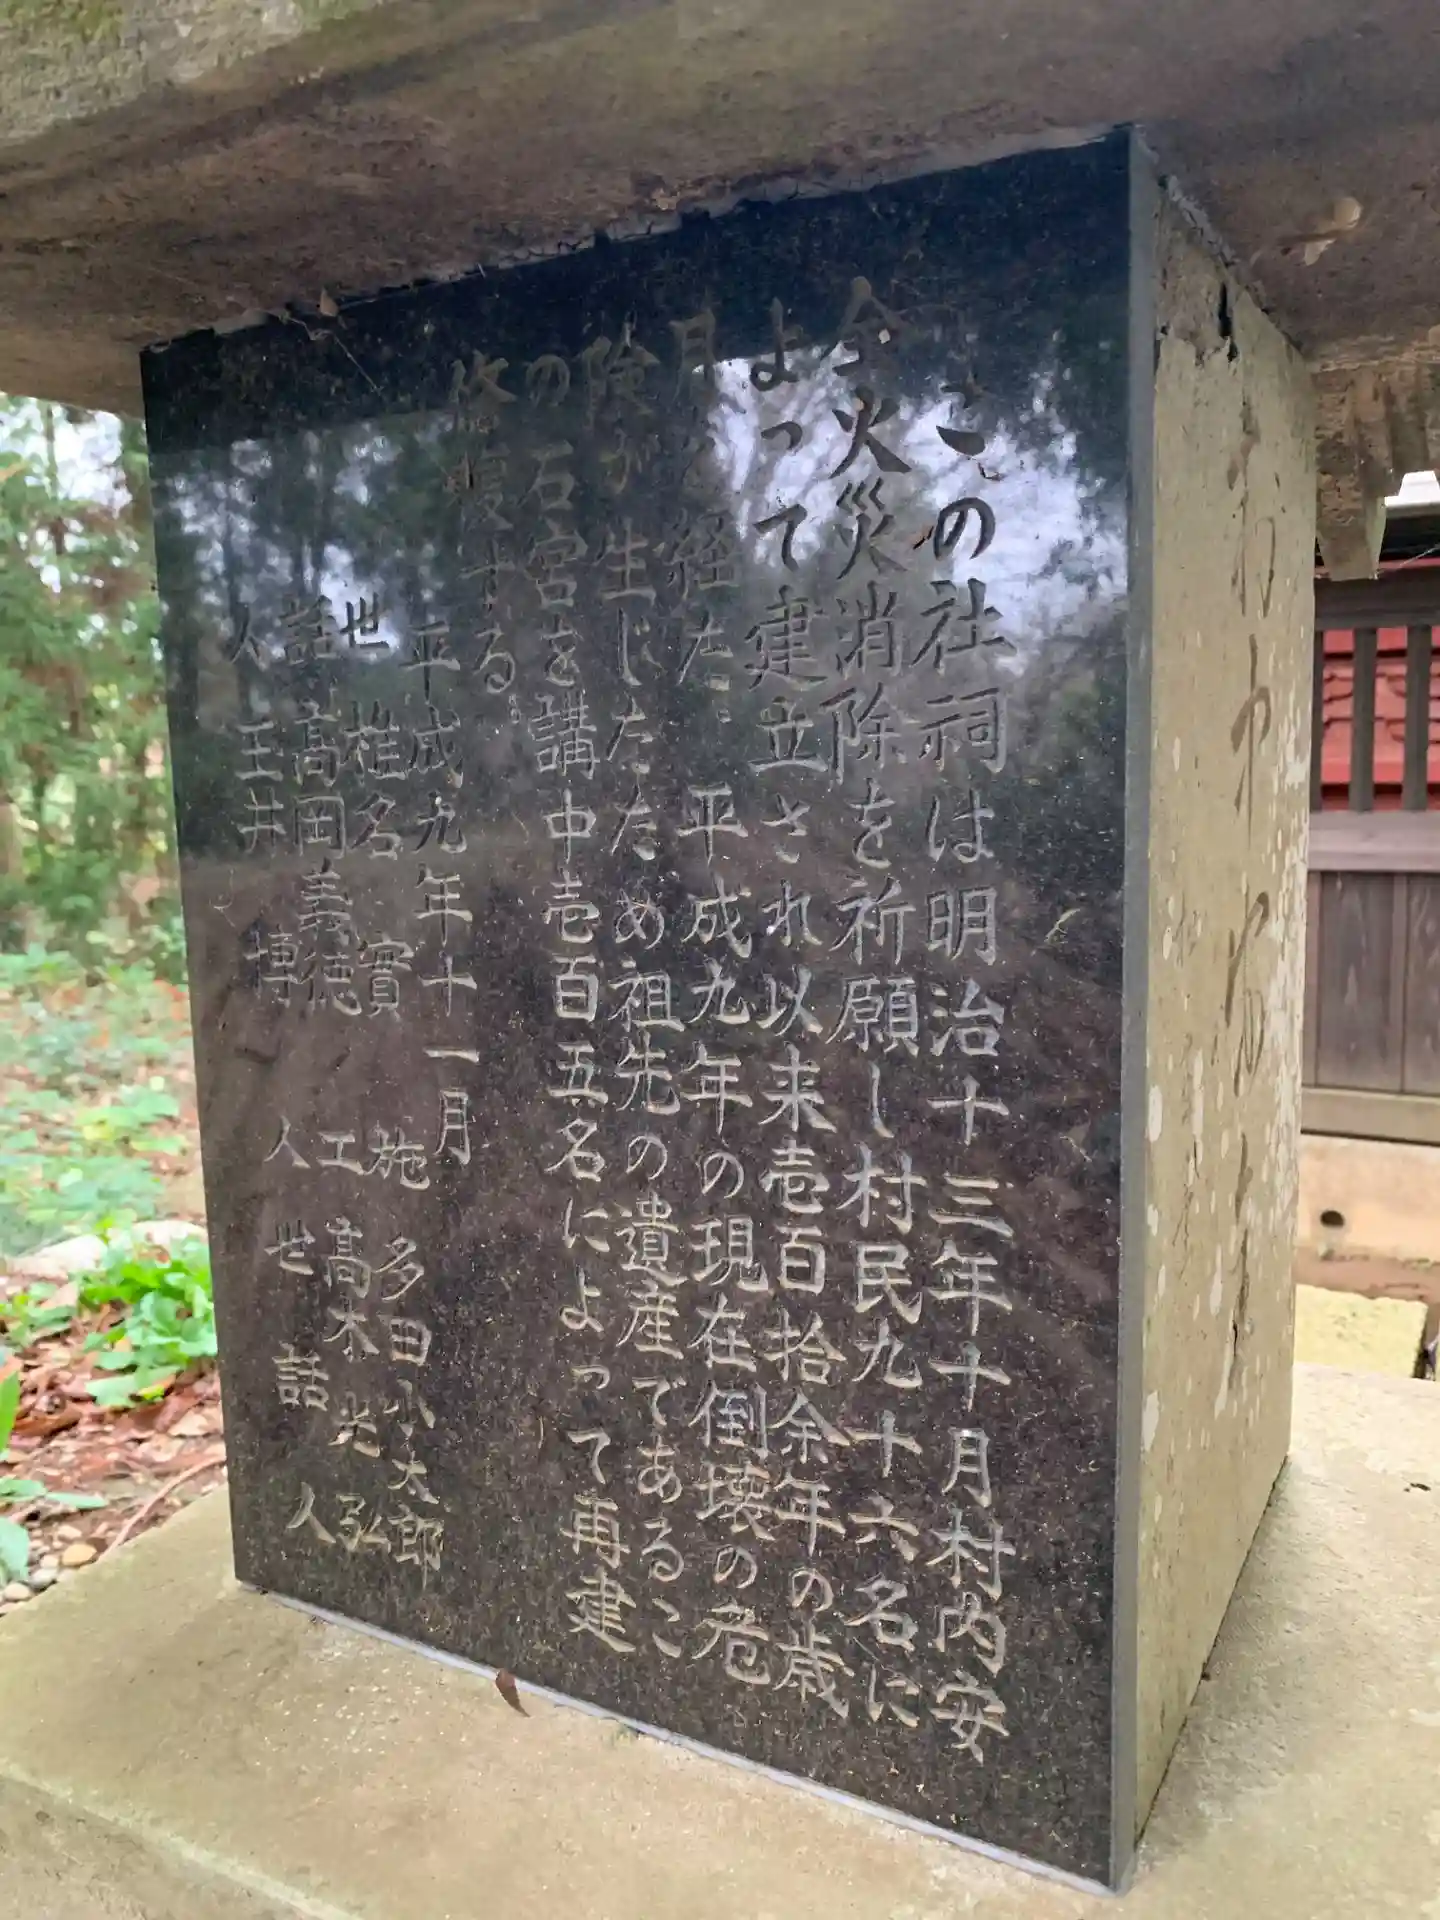 この社祠は明治十三年十月村内安
全火災消除を祈願し村民九十六名に
よって建立され以来壱百拾余年の歳
月を経た。平成九年の現在倒壊の危
険が生じたため祖先の遺産であるこ
の石宮を講中壱百五名によって再建
修復する。
平成九年十一月
世 椎名 實 施 多田小太郎
話 高岡義徳 工 高木 光弘
人 玉井 博 人 世 話 人